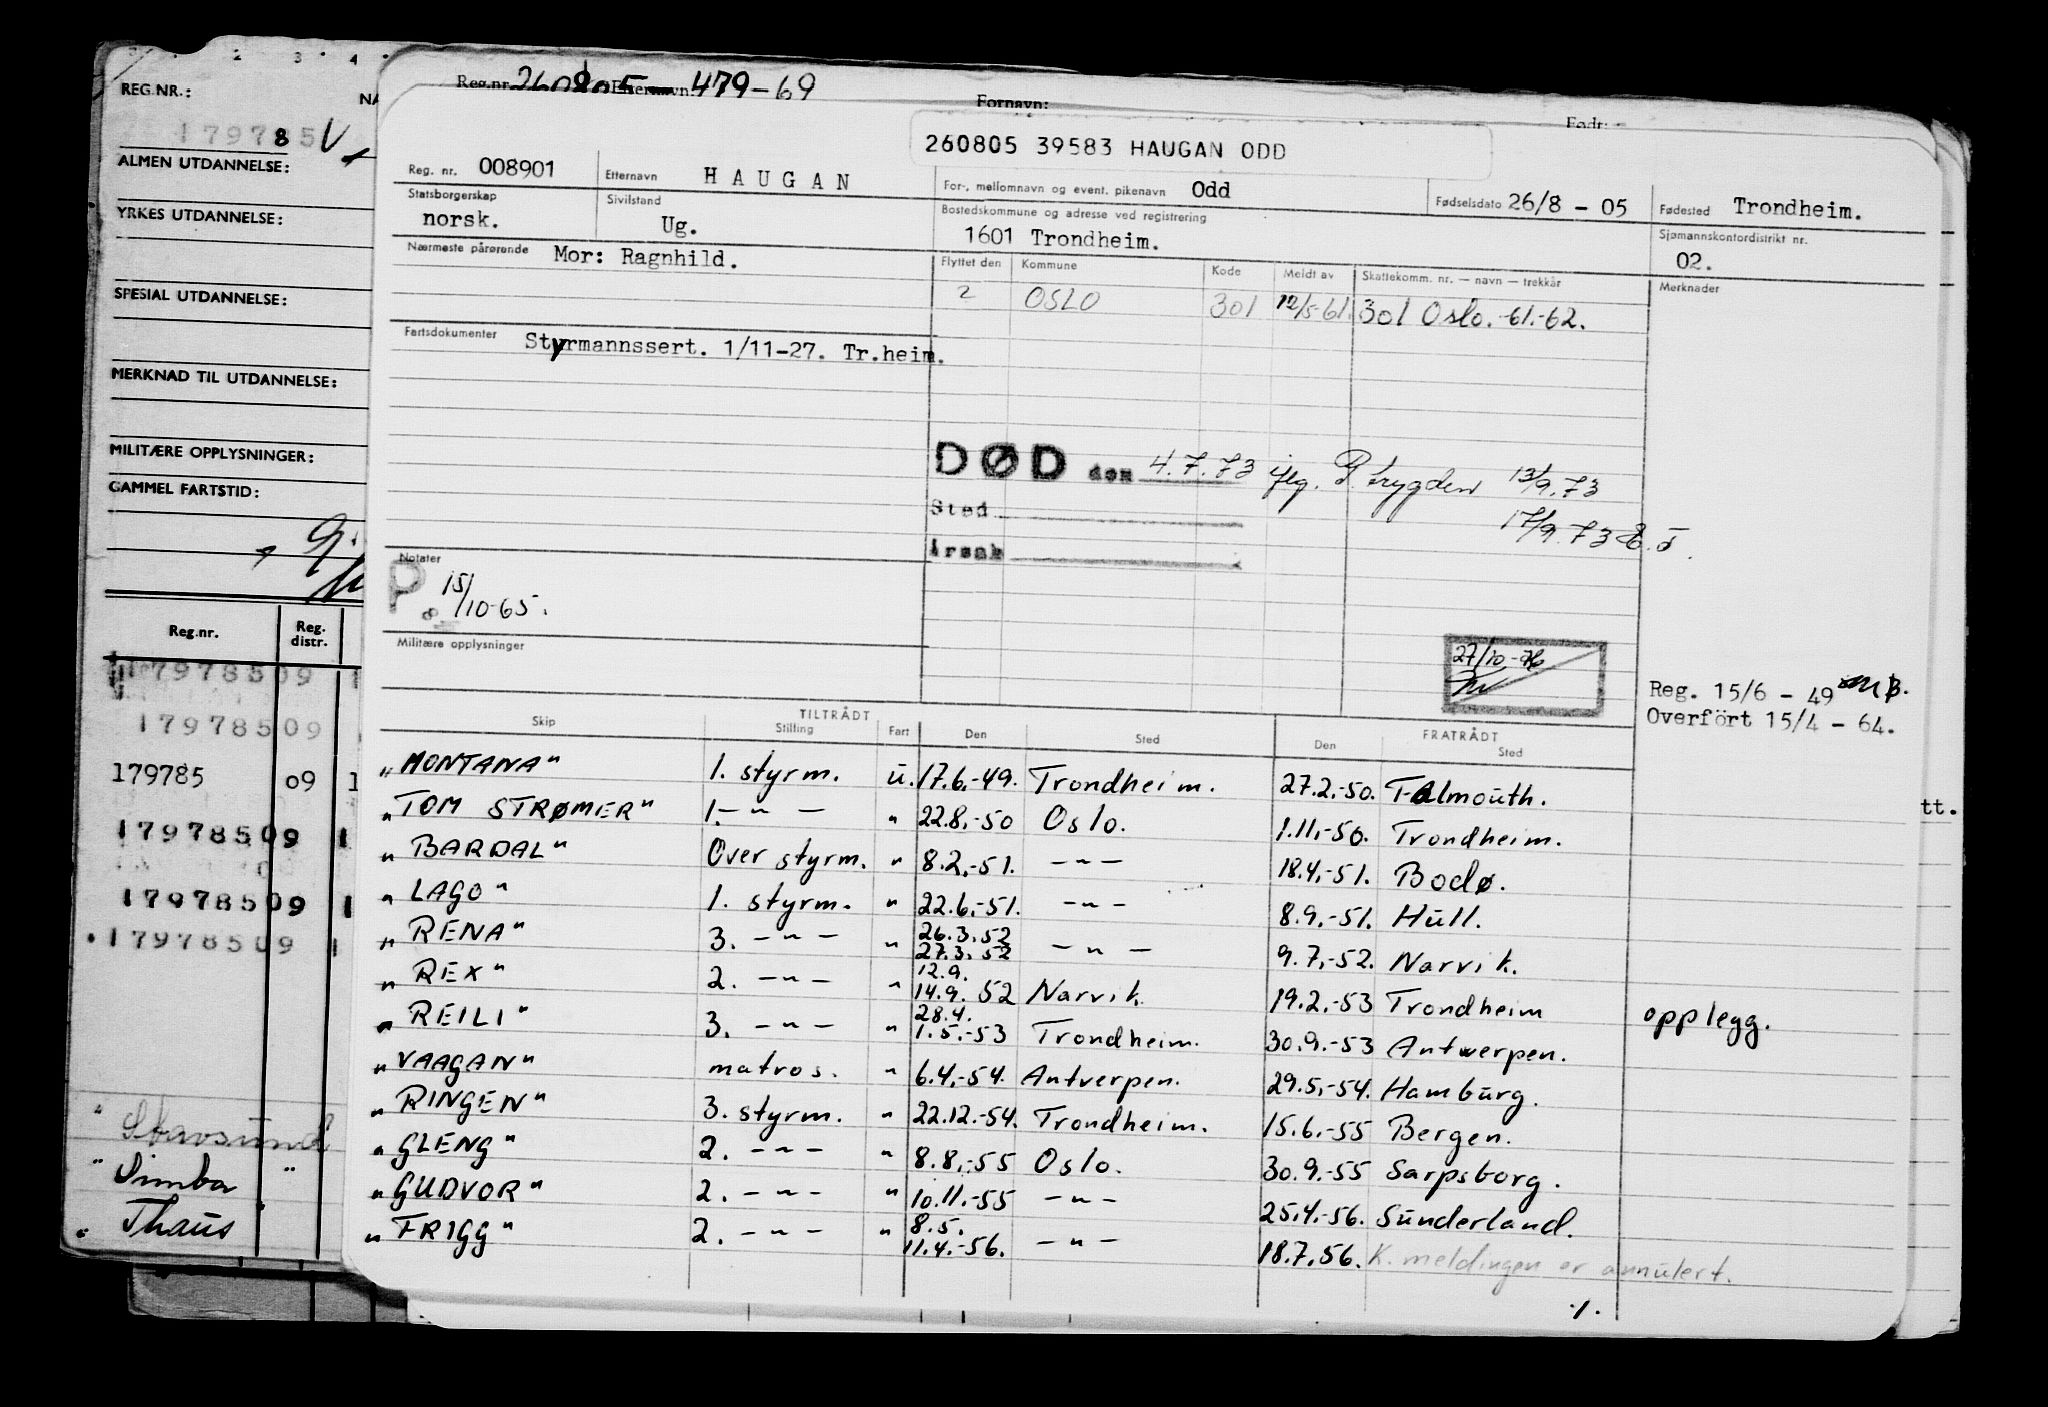 2 3 4
REG.NR.:
179785
ALMEN UTDANNELSE:
YRKES UTDANNELSE:
SPESIAL UTDANNELSE:
MERKNAD TIL UTDANNELSE:
MILITÆRE OPPLYSNINGER:
GAMMEL FARTSTID:
Reg.nr. Reg. distr.
179785 09
179785 09
179785 09
179785 09
179785 09
179785 09
" Stavsund "
" Simba "
" Thaus "
Reg.nr. 260805 Etternavn: 479-69 Fornavn: Født:
260805 39583 HAUGAN ODD
Reg. nr. 008901 Etternavn HAUGAN For-, mellomnavn og event. pikenavn Odd Fødselsdato 26/8 - 05 Fødested Trondheim.
Statsborgerskap norsk. Sivilstand Ug. Bostedskommune og adresse ved registrering 1601 Trondheim. Sjømannskontordistrikt nr. 02.
Nærmeste pårørende Mor: Ragnhild. Flyttet den Kommune Kode Meldt av Skattekomm. nr. — navn — trekkår Merknader
2 OSLO 301 12/5-61. 301 Oslo. -61.-62.
Fartsdokumenter Styrmannssert. 1/11-27. Tr.heim.
DØD den 4.7.73 iflg. P. trygden 13/9.73
Sted 17/9.73
Årsak
Notater
P. 15/10-65.
Militære opplysninger
27/10-76
Reg. 15/6 - 49
Overført 15/4 - 64.
TILTRÅDT FRATRÅDT
Skip Stilling Fart Den Sted Den Sted
"MONTANA" 1. styrm. u. 17.6.-49. Trondheim. 27.2.-50. Falmouth.
"TOM STRØMER" 1. -"- " 22.8.-50 Oslo. 1.11.-50. Trondheim.
"BARDAL" Over styrm. " 8.2.-51. -"- 18.4.-51. Bodø.
"LAGO" 1. styrm. " 22.6.-51. -"- 8.9.-51. Hull.
"RENA" 3. -"- " 26.3.52 27.3.52 -"- 9.7.-52. Narvik.
"REX" 2. -"- " 12.9. 14.9. 52 Narvik 19.2.-53 Trondheim opplegg.
"REILI" 3. -"- " 28.4. 1.5.-53 Trondheim. 30.9.-53 Antwerpen.
"VAAGAN" matros. " 6.4.-54. Antverpen. 29.5.-54. Hamburg.
"RINGEN" 3. styrm. " 22.12.-54. Trondheim. 15.6.-55 Bergen.
"GLENG" 2. -"- " 8.8.-55 Oslo. 30.9.-55 Sarpsborg.
"GUDVOR" 2. -"- " 10.11.-55 -"- 25.4.-56. Sunderland.
"FRIGG" 2. -"- " 8.5. 11.4.-56. -"- 18.7.56. K. meldingen er annulert.
./.
tt.